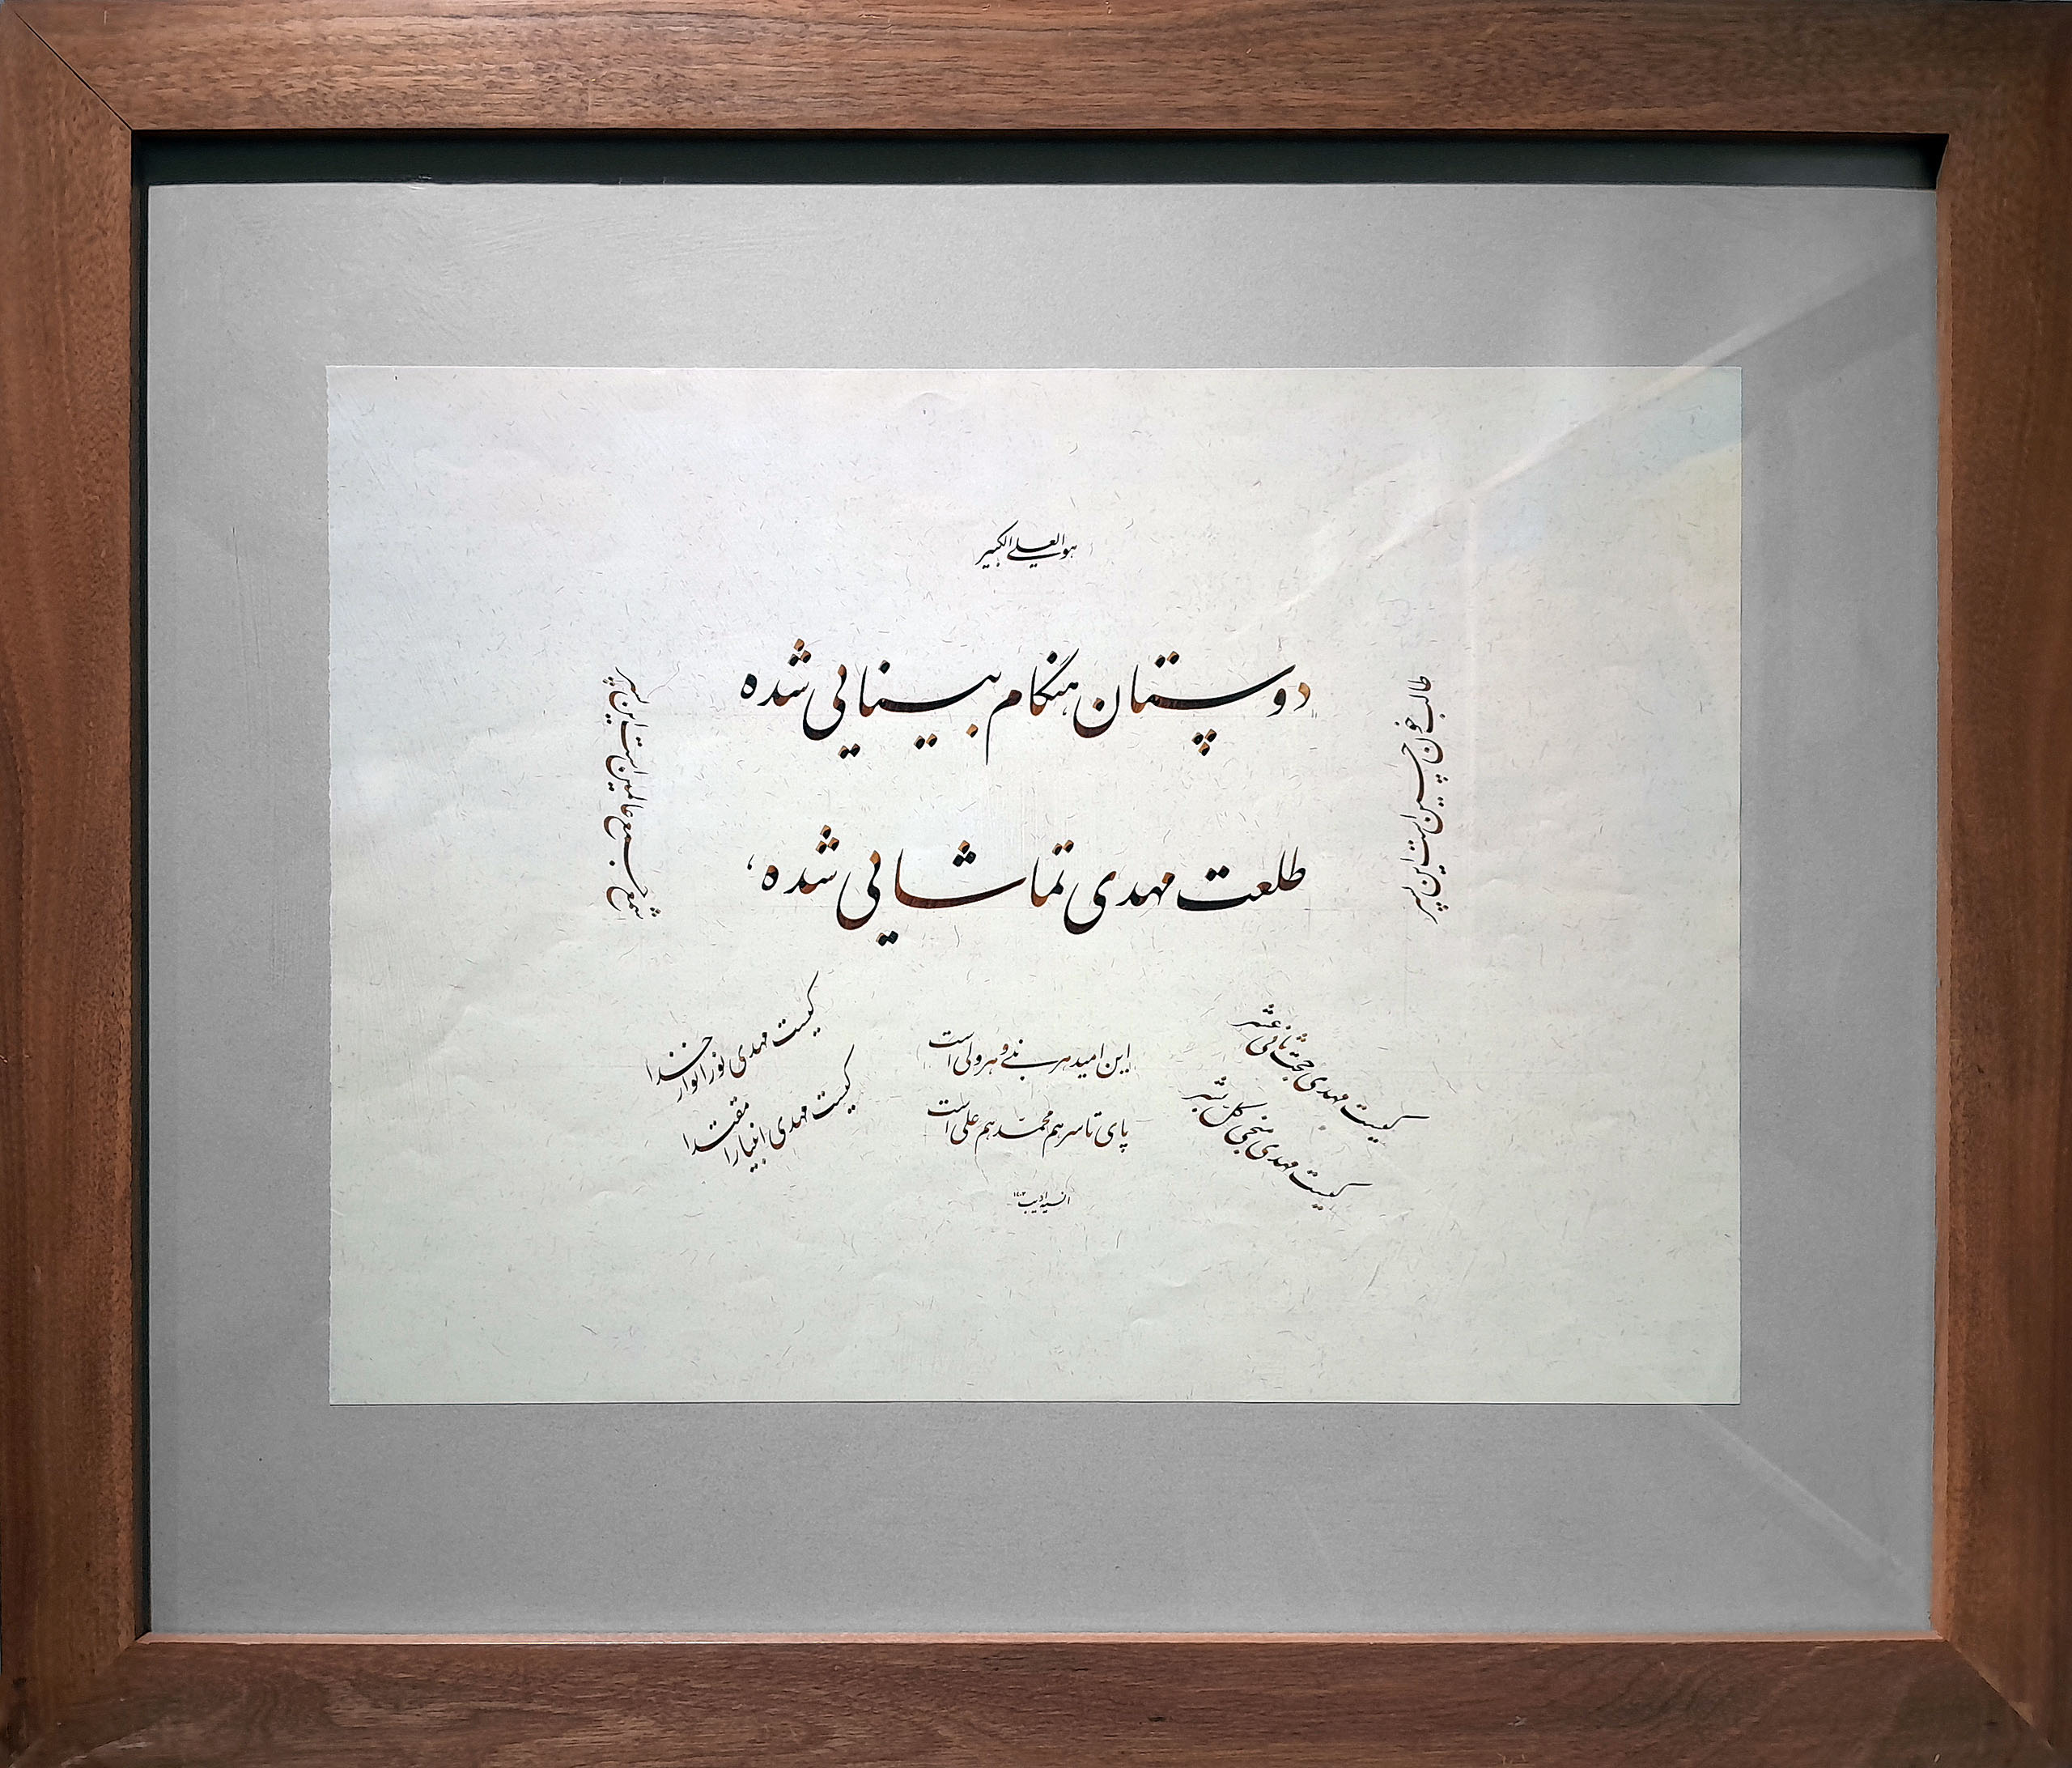 هو العلی الکبیر
دوستان هنگام بینایی شده
طلعت مهدی تماشایی شده
طالب خون حسین است این پسر
شمع جمع عالمین است این پسر
کیست مهدی حجت ثانی عشر
کیست مهدی منجی کل بشر
این امید هر نبی و هر ولی است
پای تا سر هم محمد هم علی است
کیست مهدی نور انوار خدا
کیست مهدی انبیا را مقتدا
ادیب ۱۴۰۳